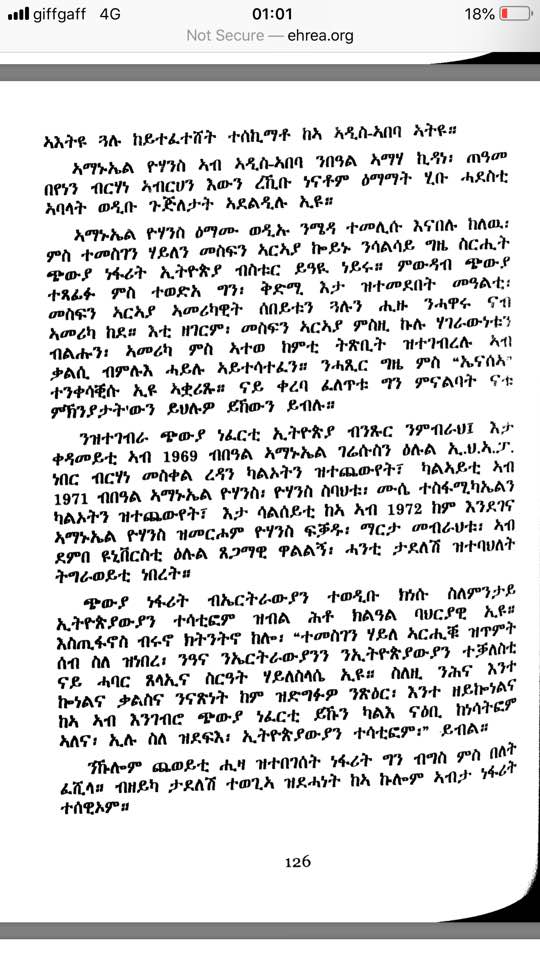 giffgaff 4G 01:01 18%
Not Secure — ehrea.org
ኣእትዩ ጓሉ ከይተፈተሸት ተሰኪማቶ ከኣ ኣዲስ-ኣበባ ኣትዩ።
ኣማኑኤል ዮሃንስ ኣብ ኣዲስ-ኣበባ ንበዓል ኣማሃ ኪዳነ፡ ጠዓመ
በየነን ብርሃነ ኣብርሀን እውን ረኺቡ ነናቶም ዕማማት ሂቡ ሓደስቲ
ኣባላት ወዲቡ ጉጅለታት ኣደልዲሉ ኢዩ።
ኣማኑኤል ዮሃንስ ዕማሙ ወዲኡ ንሜዳ ተመሊሱ እናበሉ ከለዉ፡
ምስ ተመስገን ሃይለን መስፍን ኣርኣያ ኰይኑ ንሳልሳይ ግዜ ስርሒት
ጭውያ ነፋሪት ኢትዮጵያ ብስቱር ይዓዪ ነይሩ። ምውዳብ ጭውያ
ተጻፊፉ ምስ ተወድአ ግን፡ ቅድሚ እታ ዝተመደበት መዓልቲ፡
መስፍን ኣርኣያ ኣመሪካዊት ሰበይቱን ጓሉን ሒዙ ንሓዋሩ ናብ
ኣመሪካ ከደ። እቲ ዘገርም፡ መስፍን ኣርኣያ ምስዚ ኩሉ ሃገራውነቱን
ብልሑን፡ ኣመሪካ ምስ ኣተወ ከምቲ ትጽቢት ዝተገብረሉ ኣብ
ቃልሲ ብምሉእ ሓይሉ ኣይተሳተፈን። ንሓጺር ግዜ ምስ
ተንቀሳቒሱ ኢዩ ኣቋሪጹ። ናይ ቀረባ ፈለጥቱ ግን ምናልባት ናቱ
ምኽንያታት'ውን ይህሉዎ ይኸውን ይብሉ።
ንዝተገብራ ጭውያ ነፈርቲ ኢትዮጵያ ብንጹር ንምብራህ፤ እታ
ቀዳመይቲ ኣብ 1969 ብበዓል ኣማኑኤል ገሬሱስን ዕሉል ኢ.ህ.ኣ.ፓ.
ነበር ብርሃነ መስቀል ረዳን ካልኦትን ዝተጨውየት፣ ካልኣይቲ ኣብ
1971 ብበዓል ኣማኑኤል ዮሃንስ፡ ዮሃንስ ስባህቱ፡ ሙሴ ተስፋሚካኤልን
ካልኦትን ዝተጨውየት፣ እታ ሳልሰይቲ ከኣ ኣብ 1972 ከም እንደገና
ኣማኑኤል ዮሃንስ ዝመርሖም ዮሃንስ ፍቓዱ፡ ማርታ መብራህቱ፡ ኣብ
ደምበ ዩኒቨርስቲ ዕሉል ጸጋማዊ ዋልልኝ፡ ሓንቲ ታደለሽ ዝተባህለት
ትግራወይቲ ነበረት።
ጭውያ ነፋሪት ብኤርትራውያን ተወዲቡ ክነሱ ስለምንታይ
ኢትዮጵያውያን ተሳቲፎም ዝብል ሕቶ ክልዓል ባህርያዊ ኢዩ።
እስጢፋኖስ ብሩኖ ክትንትኖ ከሎ፡ “ተመስገን ሃይለ ኣርሒቑ ዝጥምት
ሰብ ስለ ዝነበረ፡ ንዓና ንኤርትራውያንን ንኢትዮጵያውያን ተቓለስቲ
ናይ ሓባር ጸላኢና ስርዓት ሃይለስላሴ ኢዩ። ስለዚ ንሕና እንተ
ኰነልና ቃልስና ንናጽነት ከም ዝድግፉዎ ንጽዕር፡ እንተ ዘይኰነልና
ከኣ ኣብ እንገብሮ ጭውያ ነፈርቲ ይኹን ካልእ ናዕቢ ከነሳትፎም
ኣለና፡ ኢሉ ስለ ዝደፍአ፡ ኢትዮጵያውያን ተሳቲፎም፡” ይብል።
ንኹሎም ጨወይቲ ሒዛ ዝተበገሰት ነፋሪት ግን ብግስ ምስ በለት
ፈሺላ። ብዘይካ ታደለሽ ተወጊኣ ዝደሓነት ከኣ ኩሎም ኣብታ ነፋሪት
ተሰዊኦም።
126